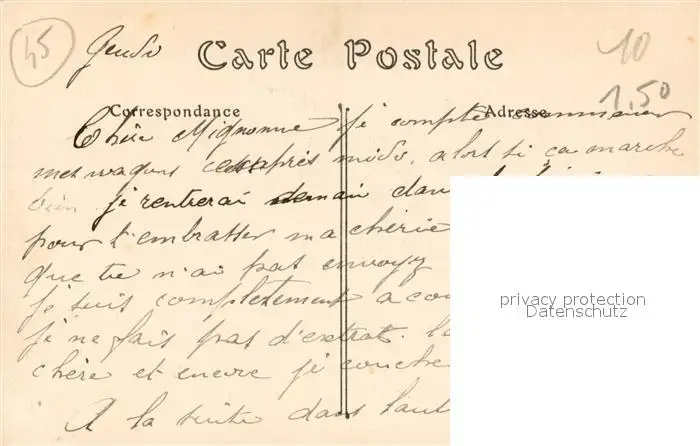 45
Jeudi
Carte Postale
10
1.50
Correspondance
Adresse
Chère Mignonne je compte commencer
mes wagons cet après midi, alors si ça marche
bien je rentrerai demain dans
pour t'embrasser ma chérie
que tu n'ai pas envoyé
je suis complètement a cou
je ne fais pas d'extrat.
chère et encore je couche
A la suite dans l'aut
privacy protection
Datenschutz